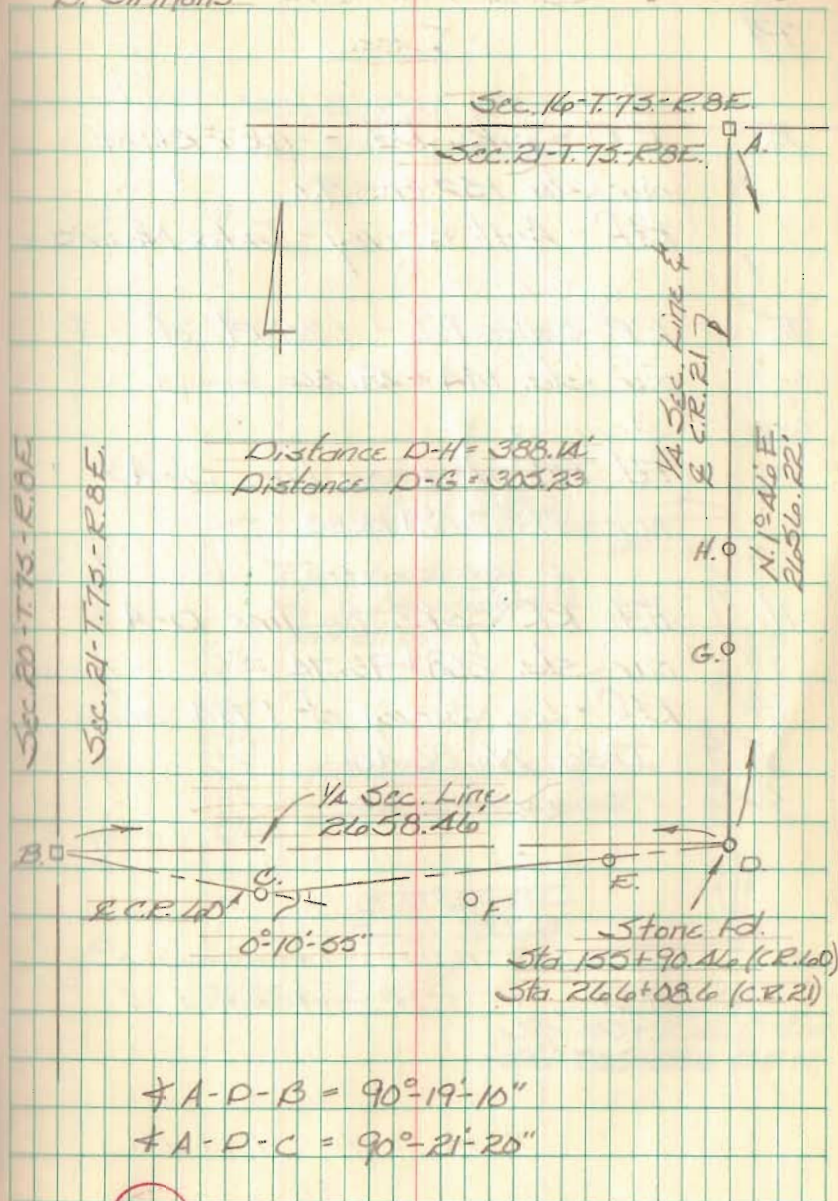 Simmons
Sec. 16-T.7S.-R.8E.
Sec. 21-T.7S.-R.8E.
A.
1/4 Sec. Line &
℄ C.R. 21
N.1°46'E.
2656.22'
Distance D-H = 388.14'
Distance D-G = 305.23
Sec. 20-T.7S.-R.8E.
Sec. 21-T.7S.-R.8E.
H.
G.
1/4 Sec. Line
2658.46'
B.
C.
D.
E.
F.
℄ C.R. 60
0°-10'-55"
Stone Fd.
Sta. 155+90.46 (C.R.60)
Sta. 266+08.6 (C.R.21)
∡ A-D-B = 90°-19'-10"
∡ A-D-C = 90°-21'-20"